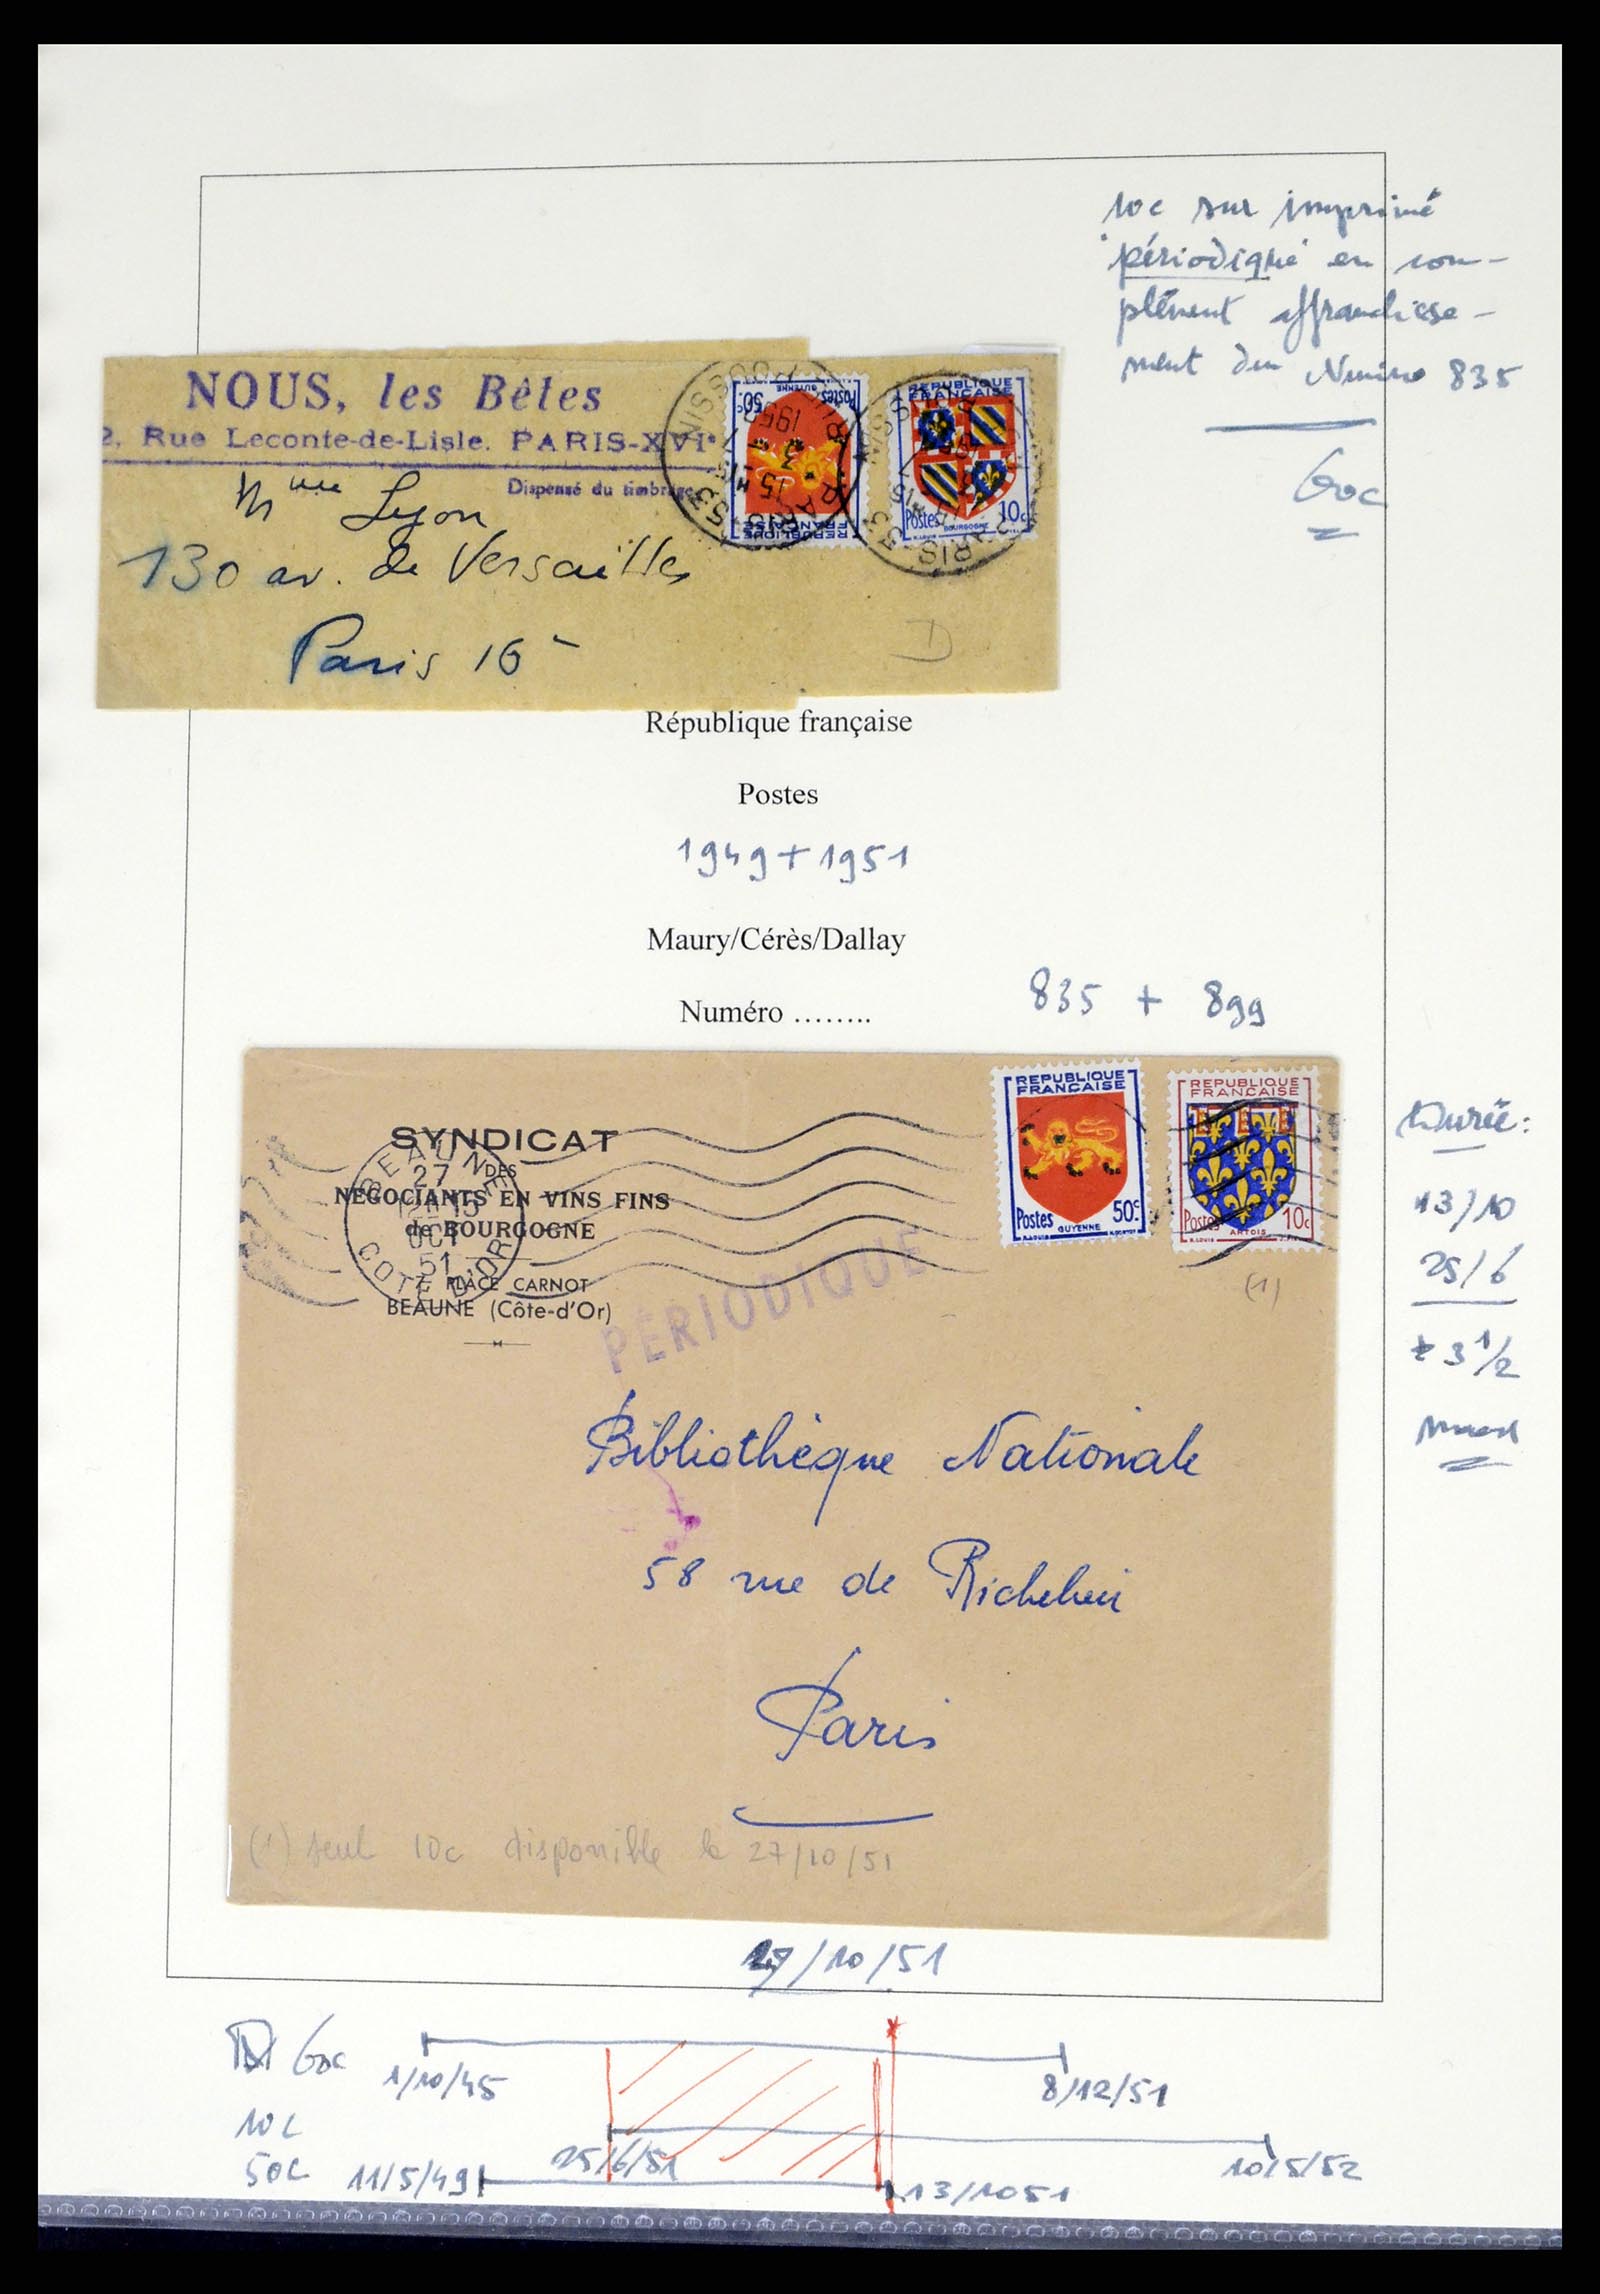 10c sur imprimé
"périodique" en com-
plément affranchisse-
ment du Numéro 835
60c
NOUS, les Bêtes
2, Rue Leconte-de-Lisle. PARIS-XVIe
Dispensé du timbrage
Mme Lyon
130 av. de Versailles
Paris 16e
D
REPUBLIQUE FRANÇAISE
Postes
GUYENNE
50c
REPUBLIQUE
Postes
BOURGOGNE
10c
République française
Postes
1949 + 1951
Maury/Cérès/Dallay
Numéro ........
835 + 899
SYNDICAT
DES
NEGOCIANTS EN VINS FINS
de BOURGOGNE
7, PLACE CARNOT
BEAUNE (Côte-d'Or)
BEAUNE
27
OCT
51
COTE D'OR
PÉRIODIQUE
REPUBLIQUE
FRANÇAISE
Postes
GUYENNE
50c
REPUBLIQUE
FRANÇAISE
Postes
ARTOIS
10c
(1)
Durée:
13/10
25/6
± 3 1/2
Bibliothèque Nationale
58 rue de Richelieu
Paris
(1) seul 10c disponible le 27/10/51
27/10/51
60c
1/10/45
8/12/51
10c
25/6/51
10/5/52
50c
11/5/49
13/1051